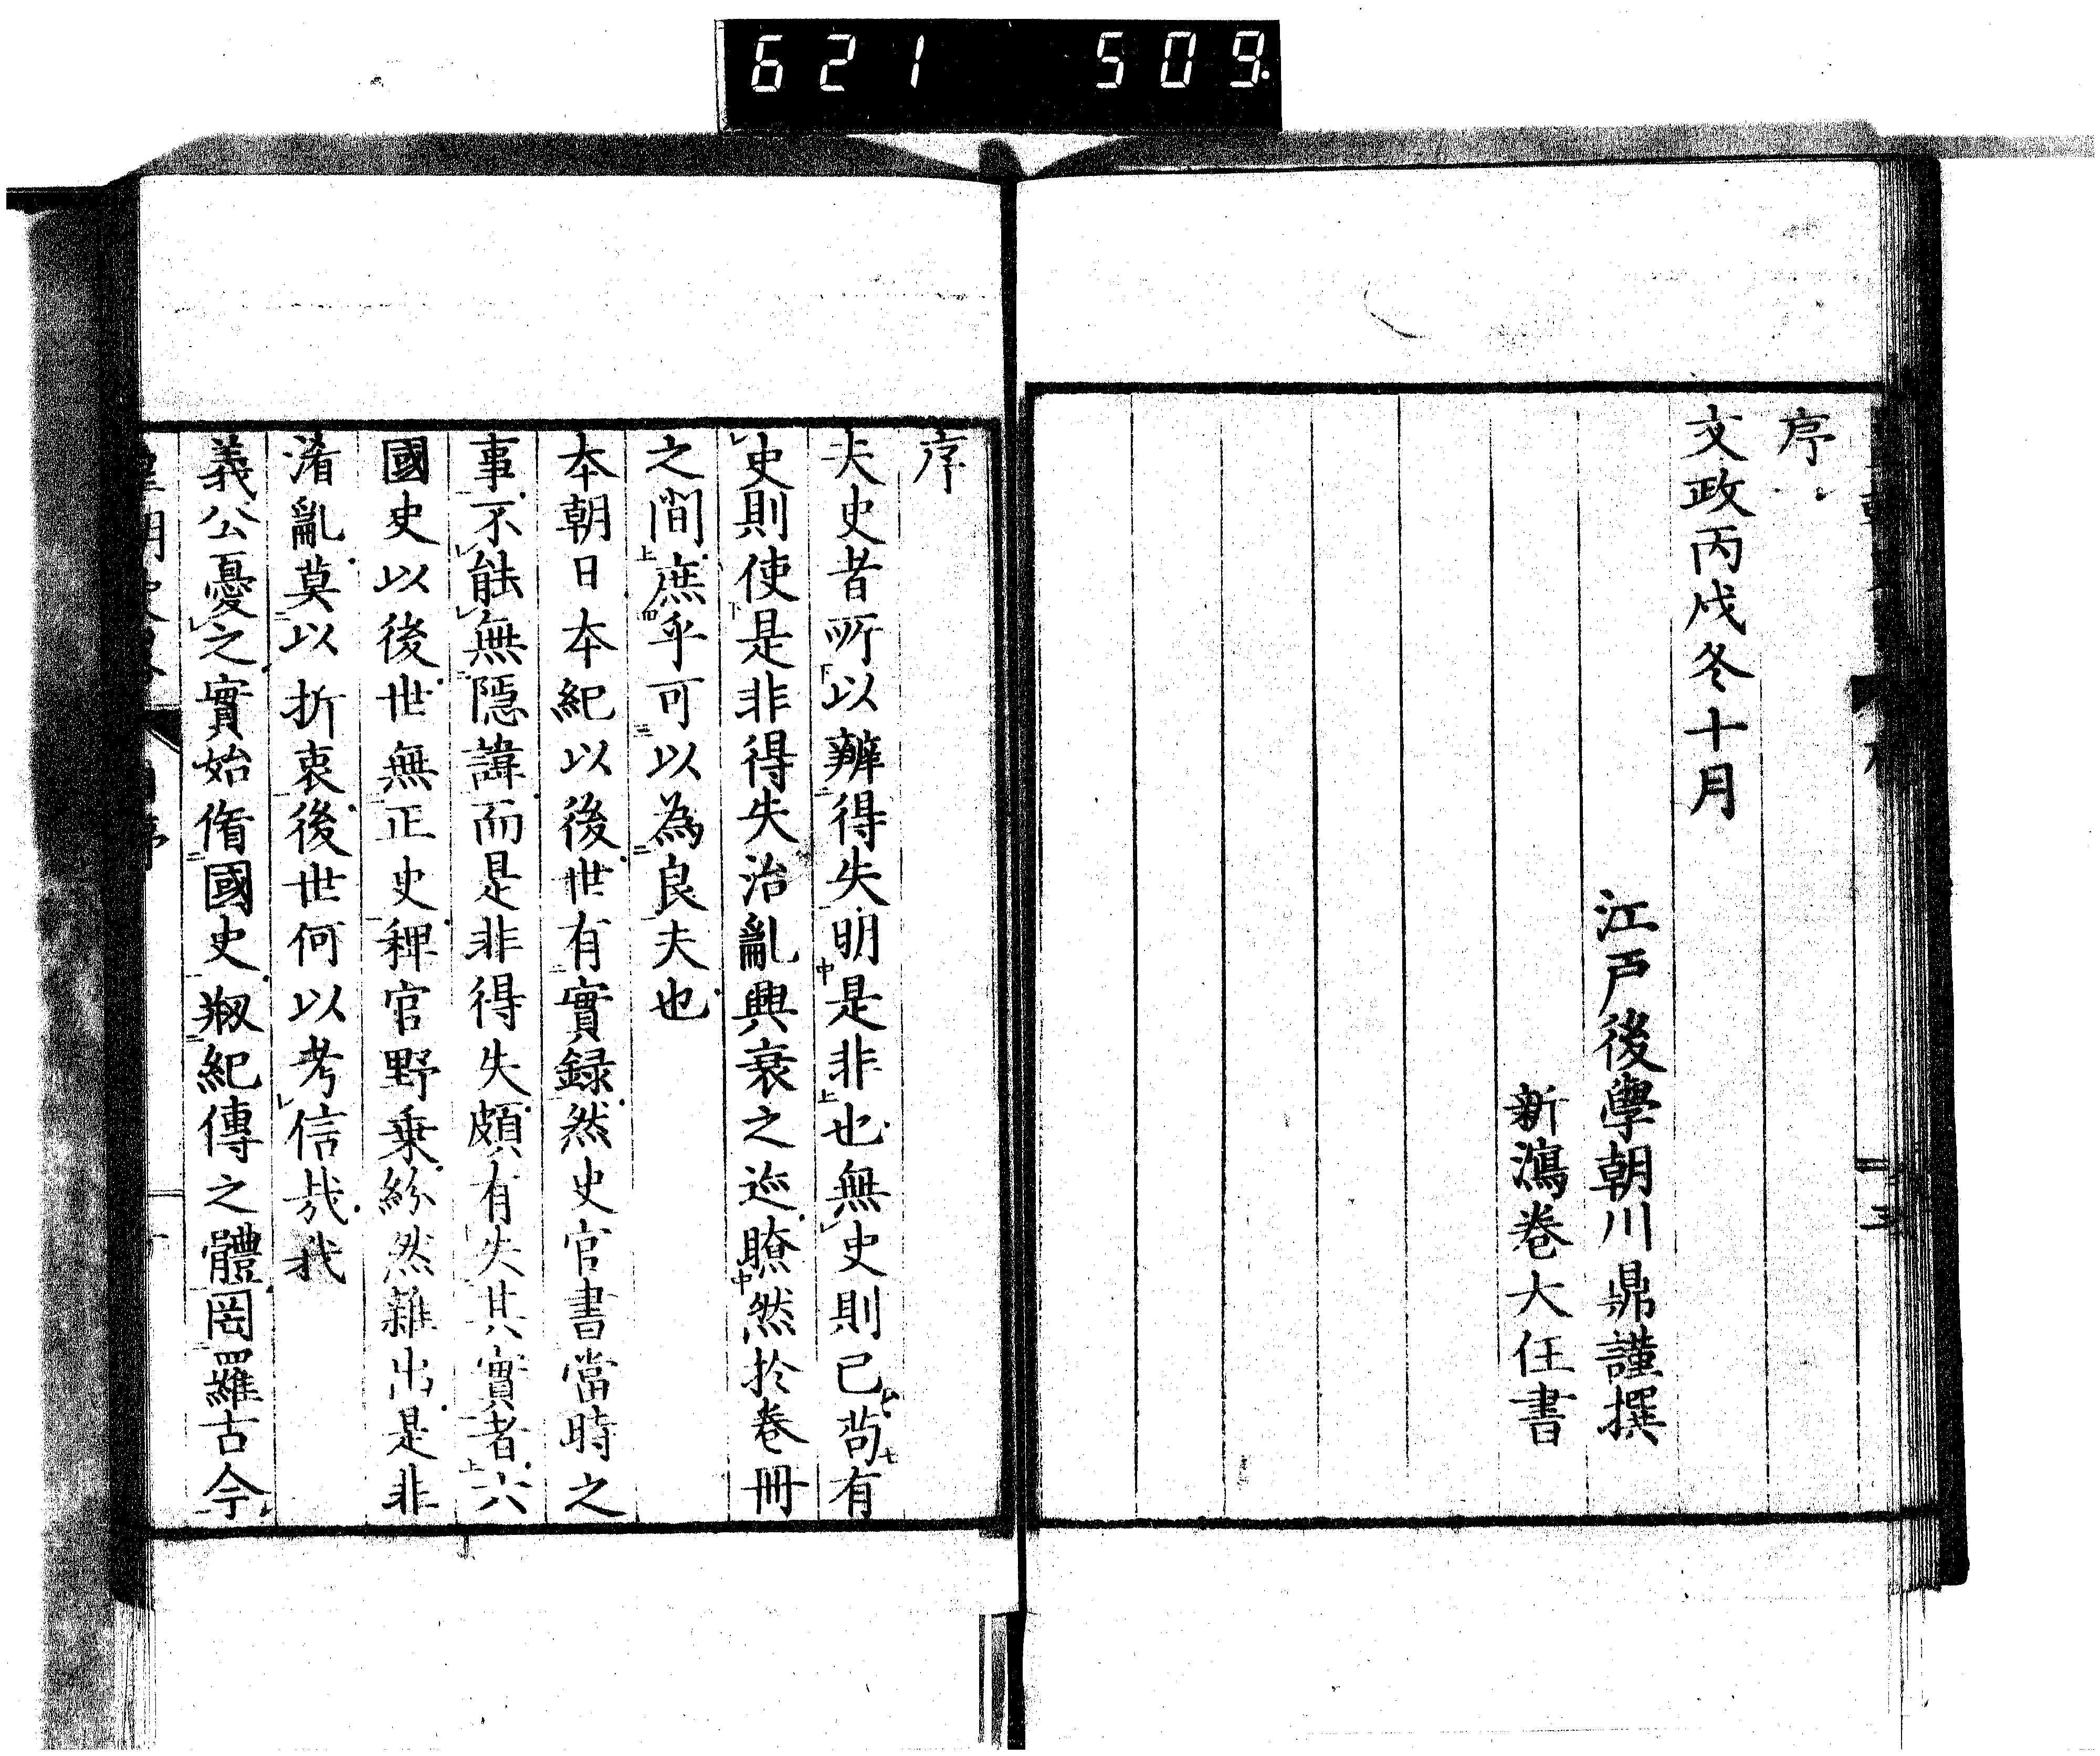 621 509
序
文政丙戌冬十月
江戸後學朝川鼎謹撰
新潟卷大任書
序
夫史者所以辨得失明是非也無史則已苟有
史則使是非得失治亂興衰之迹瞭然於卷冊
之間庶乎可以為良夫也
本朝日本紀以後世有實録然史官書當時之
事不能無隱諱而是非得失頗有失其實者六
國史以後世無正史稗官野乗紛然雜出是非
淆亂莫以折衷後世何以考信哉我
義公憂之實始脩國史剏紀傳之體罔羅古今